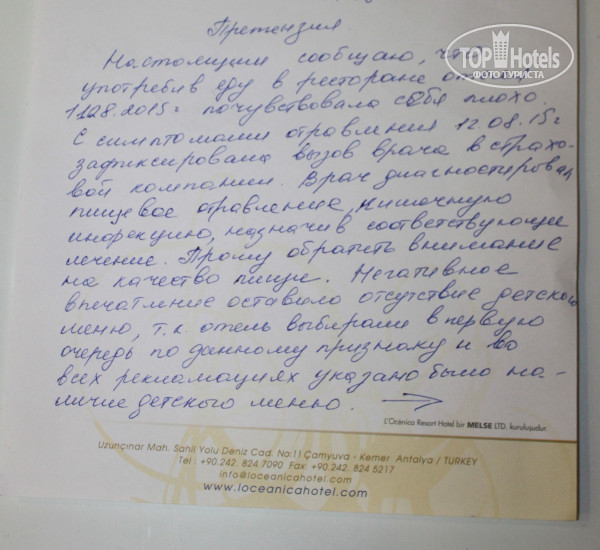 Претензия
TOP Hotels
ФОТО ТУРИСТА
Настоящим сообщаю, что
употребив еду в ресторане отеля
11.08.2015г почувствовала себя плохо.
С симптомами отравления 12.08.15г
зафиксирована вызов врача в страхо-
вой компании. Врач диагностировал
пищевое отравление, кишечную
инфекцию, назначив соответствующее
лечение. Прошу обратить внимание
на качество пищи. Негативное
впечатление оставило отсутствие детского
меню, т.к. отель выбирали в первую
очередь по данному признаку и во
всех рекламациях указано было на-
личие детского меню.
L'Oceanica Resort Hotel bir MELSE LTD. kuruluşudur.
Uzunçınar Mah. Sahil Yolu Deniz Cad. No:11 Çamyuva - Kemer Antalya / TURKEY
Tel : +90.242. 824 7090 Fax: +90.242. 824 5217
info@loceanicahotel.com
www.loceanicahotel.com